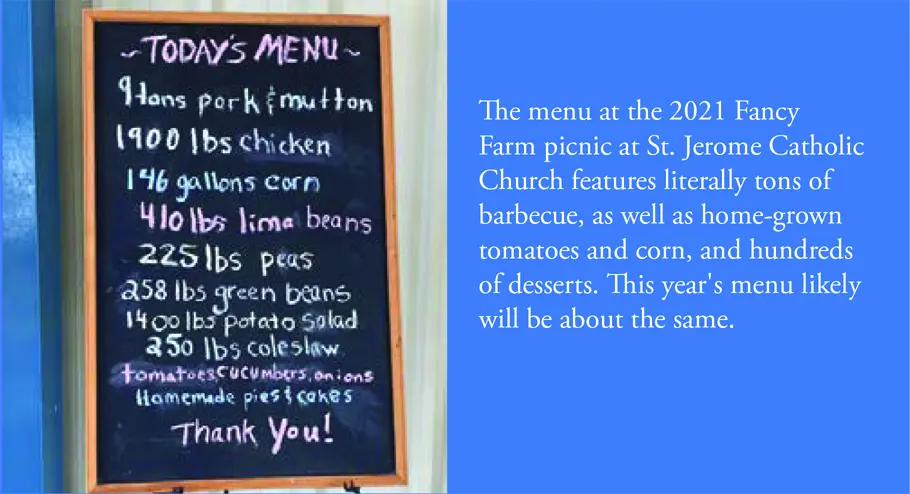 ~TODAY'S MENU~
9 tons pork & mutton
1900 lbs chicken
146 gallons corn
410 lbs lima beans
225 lbs peas
258 lbs green beans
1400 lbs potato salad
250 lbs coleslaw
tomatoes, cucumbers, onions
Homemade pies & cakes
Thank You!
The menu at the 2021 Fancy
Farm picnic at St. Jerome Catholic
Church features literally tons of
barbecue, as well as home-grown
tomatoes and corn, and hundreds
of desserts. This year's menu likely
will be about the same.